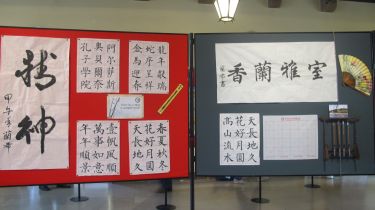 精神
甲午年
阿尔萨斯
奥贝尔奈
孔子學院
龍年獻瑞
蛇序呈祥
金馬迎春
壹帆風順
萬事如意
年年順景
春夏秋冬
花好月圓
天長地久
香蘭雅室
天長地久
花好月圓
高山流水